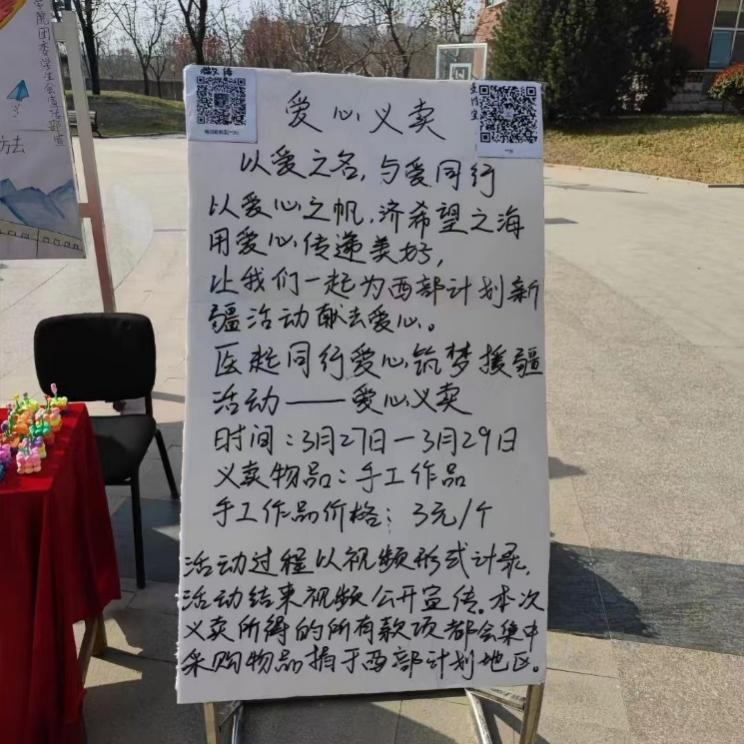 学院团委学生会宣传部宣
方去
微信
支付宝
爱心义卖
以爱之名,与爱同行
以爱心之帆,济希望之海
用爱心传递美好,
让我们一起为西部计划新
疆活动献去爱心。
医起同行爱心筑梦援疆
活动——爱心义卖
时间:3月27日—3月29日
义卖物品:手工作品
手工作品价格:3元/个
活动过程以视频形式计录,
活动结束视频公开宣传。本次
义卖所得的所有款项都会集中
采购物品捐于西部计划地区。